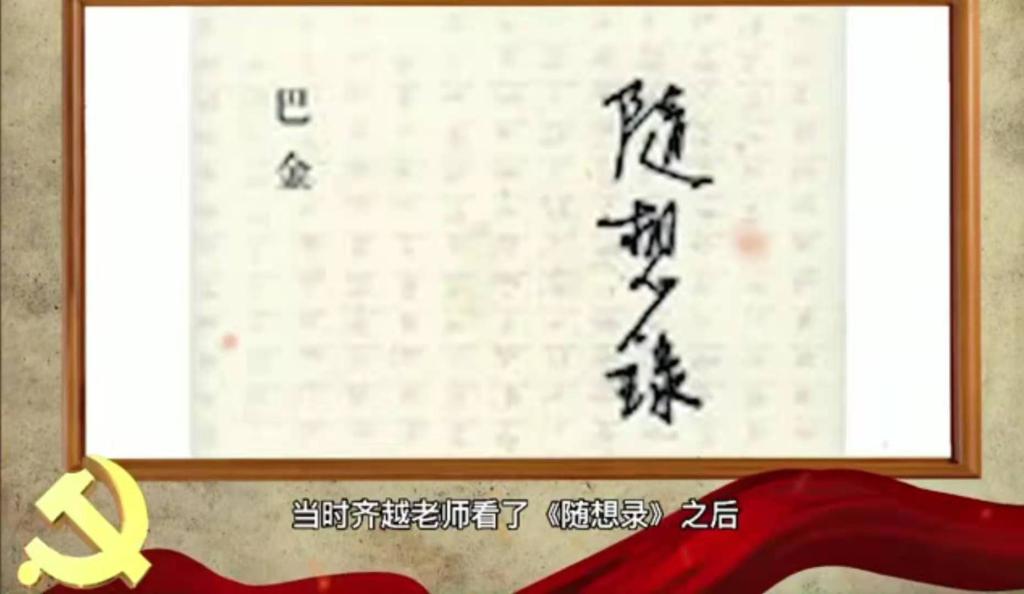 隨想録
巴金
当时齐越老师看了《随想录》之后